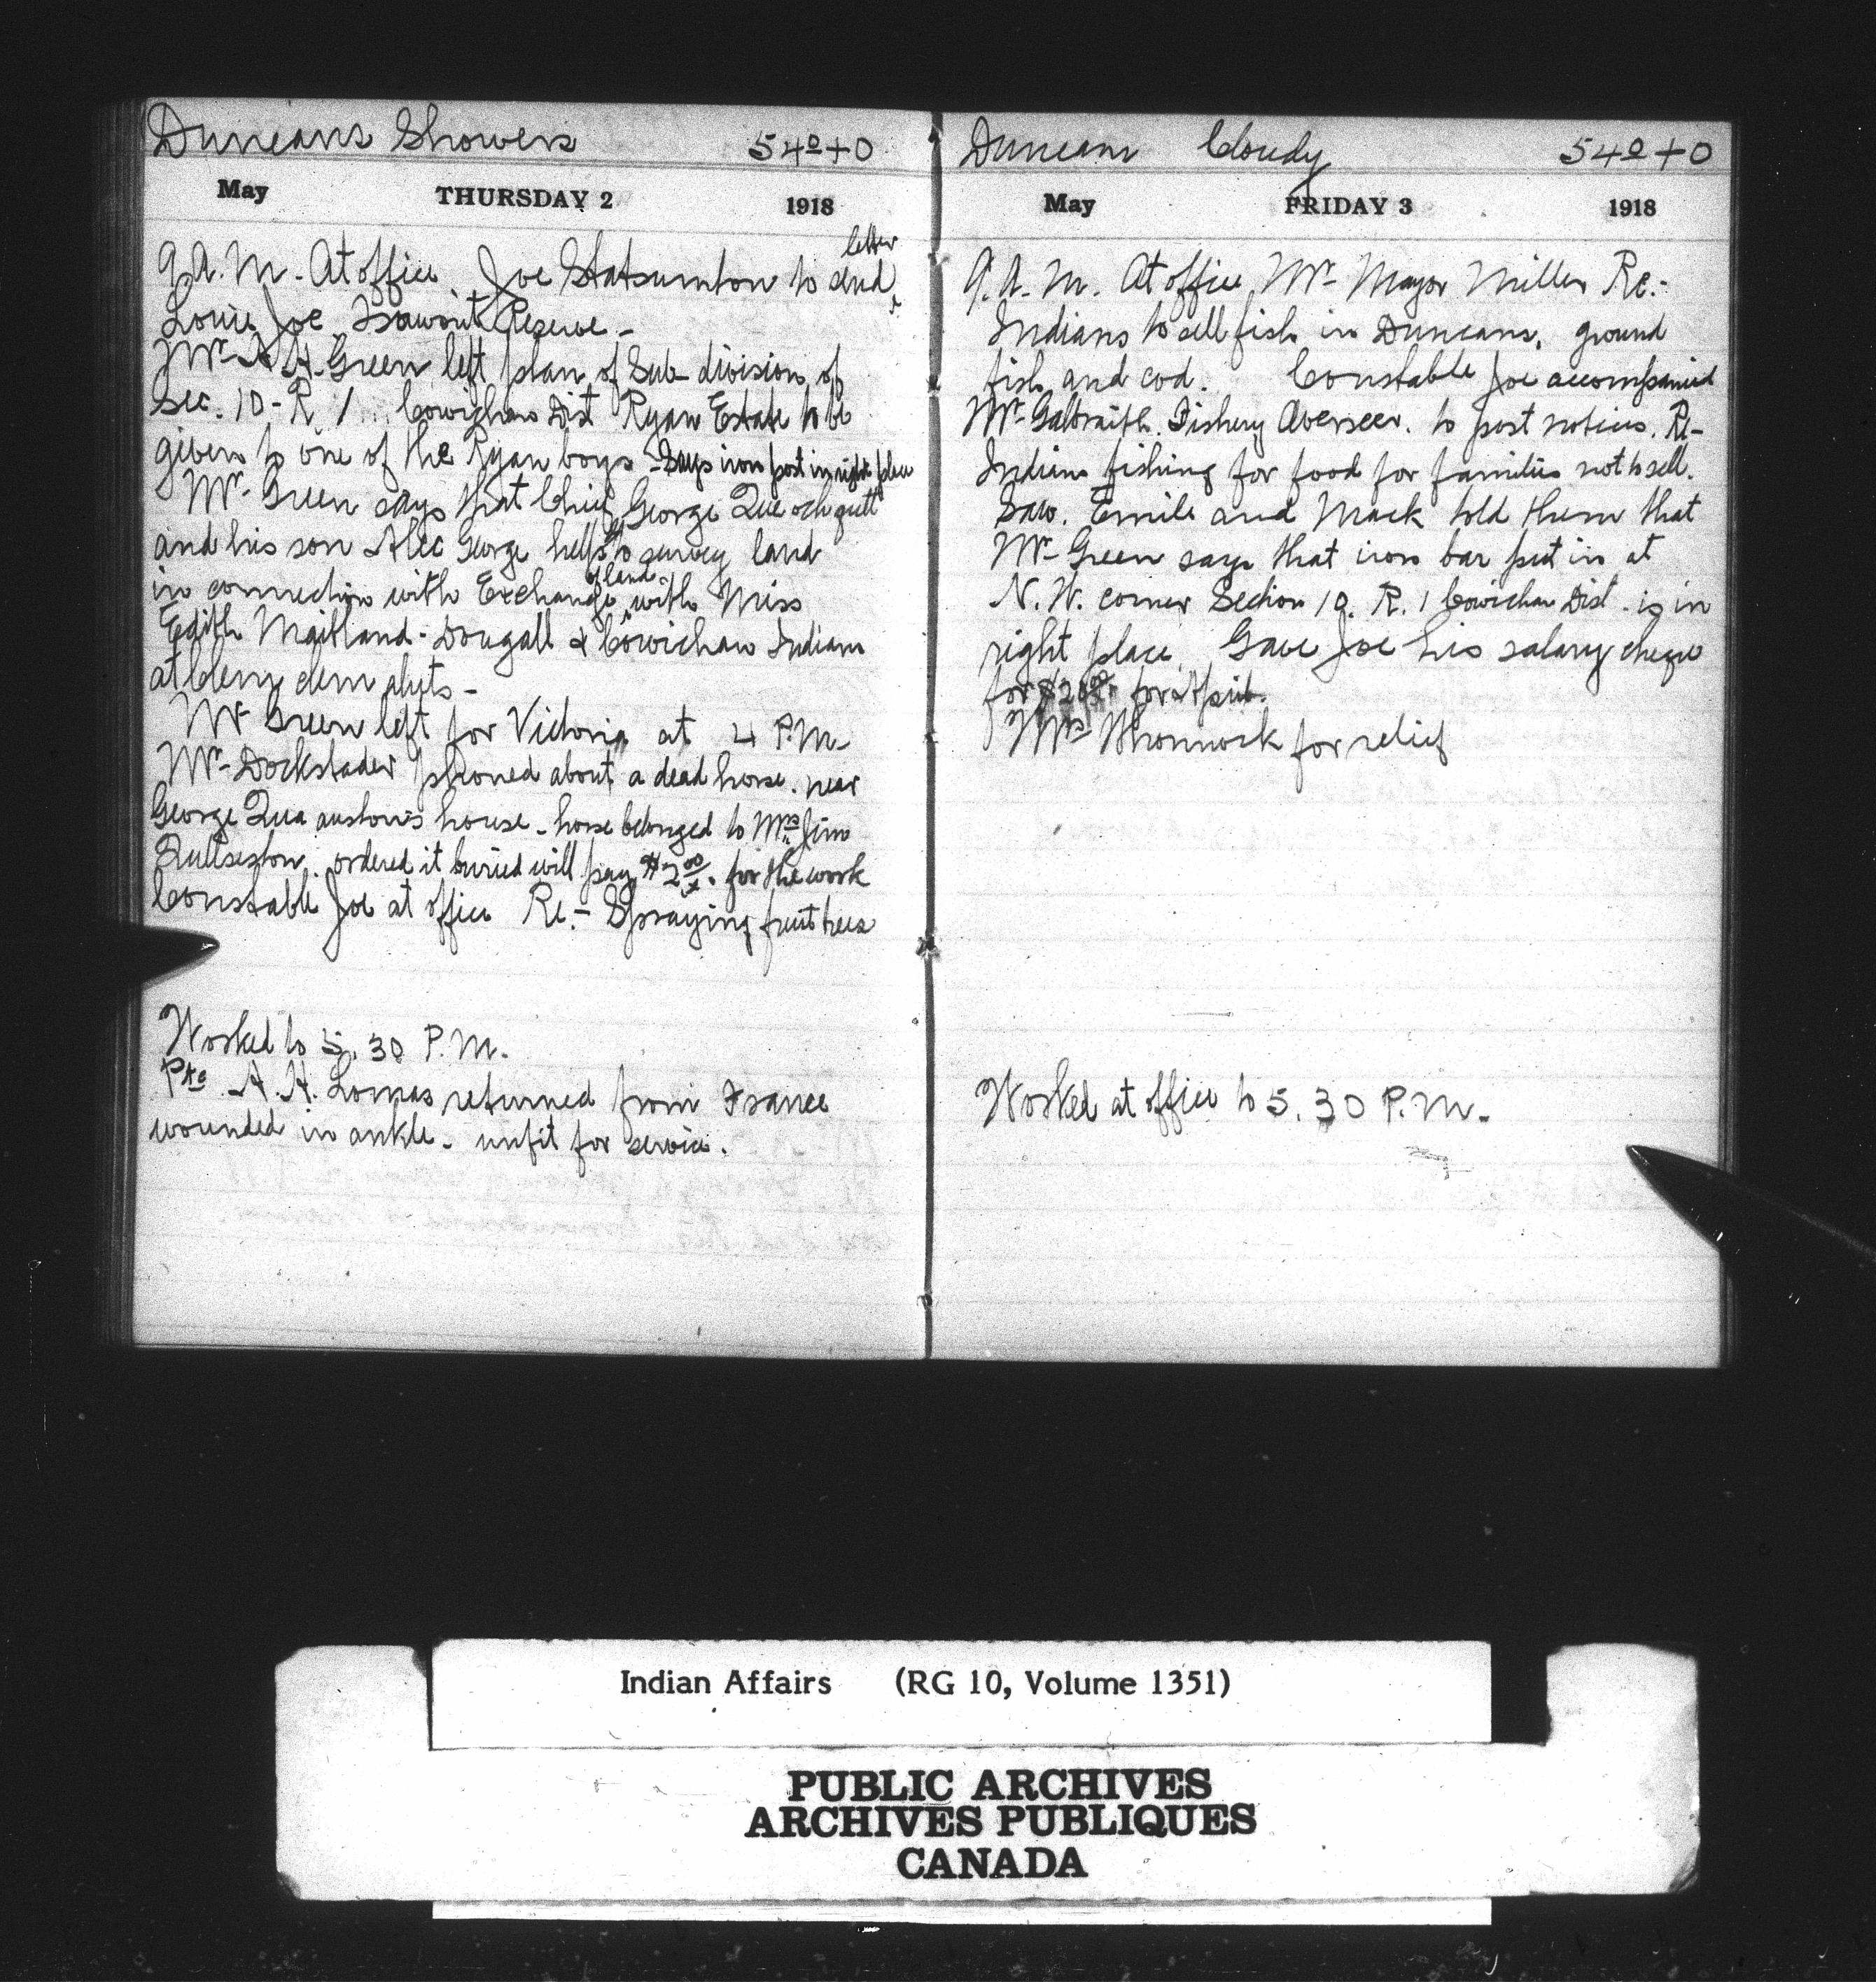 Duncans Showers 54º+0
May THURSDAY 2 1918
letter
9 A.M. At office. Joe Statsumton to send
Louie Joe Tsawout Reserve -
Mr A.H. Green left plan of Sub-division of
Sec. 10 - R 1 Cowichan Dist Ryan Estate to be
given to one of the Ryan boys - Says iron post in right place
Mr Green says that Chief George
and his son Alec George helps to survey land
of land
in connection with Exchange with Miss
Edith Maitland-Dougall & Cowichan Indians
at Clem clem aluts -
Mr Green left for Victoria at 4 P.M-
Mr- Dockstader phoned about a dead horse. near
George house - horse belonged to Mrs Jim
ordered it buried will pay $2.00/x. for the work
Constable Joe at office Re:- Spraying fruit trees
Worked to 5.30 P.M.
Pte A.H. Lomas returned from France
wounded in ankle - unfit for service.
Duncan Cloudy 54º+0
May FRIDAY 3 1918
9. A.M. At office Mr- Mayor Miller Re:-
Indians to sell fish in Duncans, ground
fish and cod. Constable Joe accompanied
Mr- Galbraith. Fishery Overseer. to post notices. Re-
Indians fishing for food for families not to sell.
Saw. Emile and Mack told them that
Mr- Green says that iron bar put in at
N.W. corner Section 10. R. 1 Cowichan Dist - is in
right place. Gave Joe his salary cheque
for $20.00 for April.
Mrs for relief
Worked at office to 5.30 P.M.
Indian Affairs (RG 10, Volume 1351)
PUBLIC ARCHIVES
ARCHIVES PUBLIQUES
CANADA